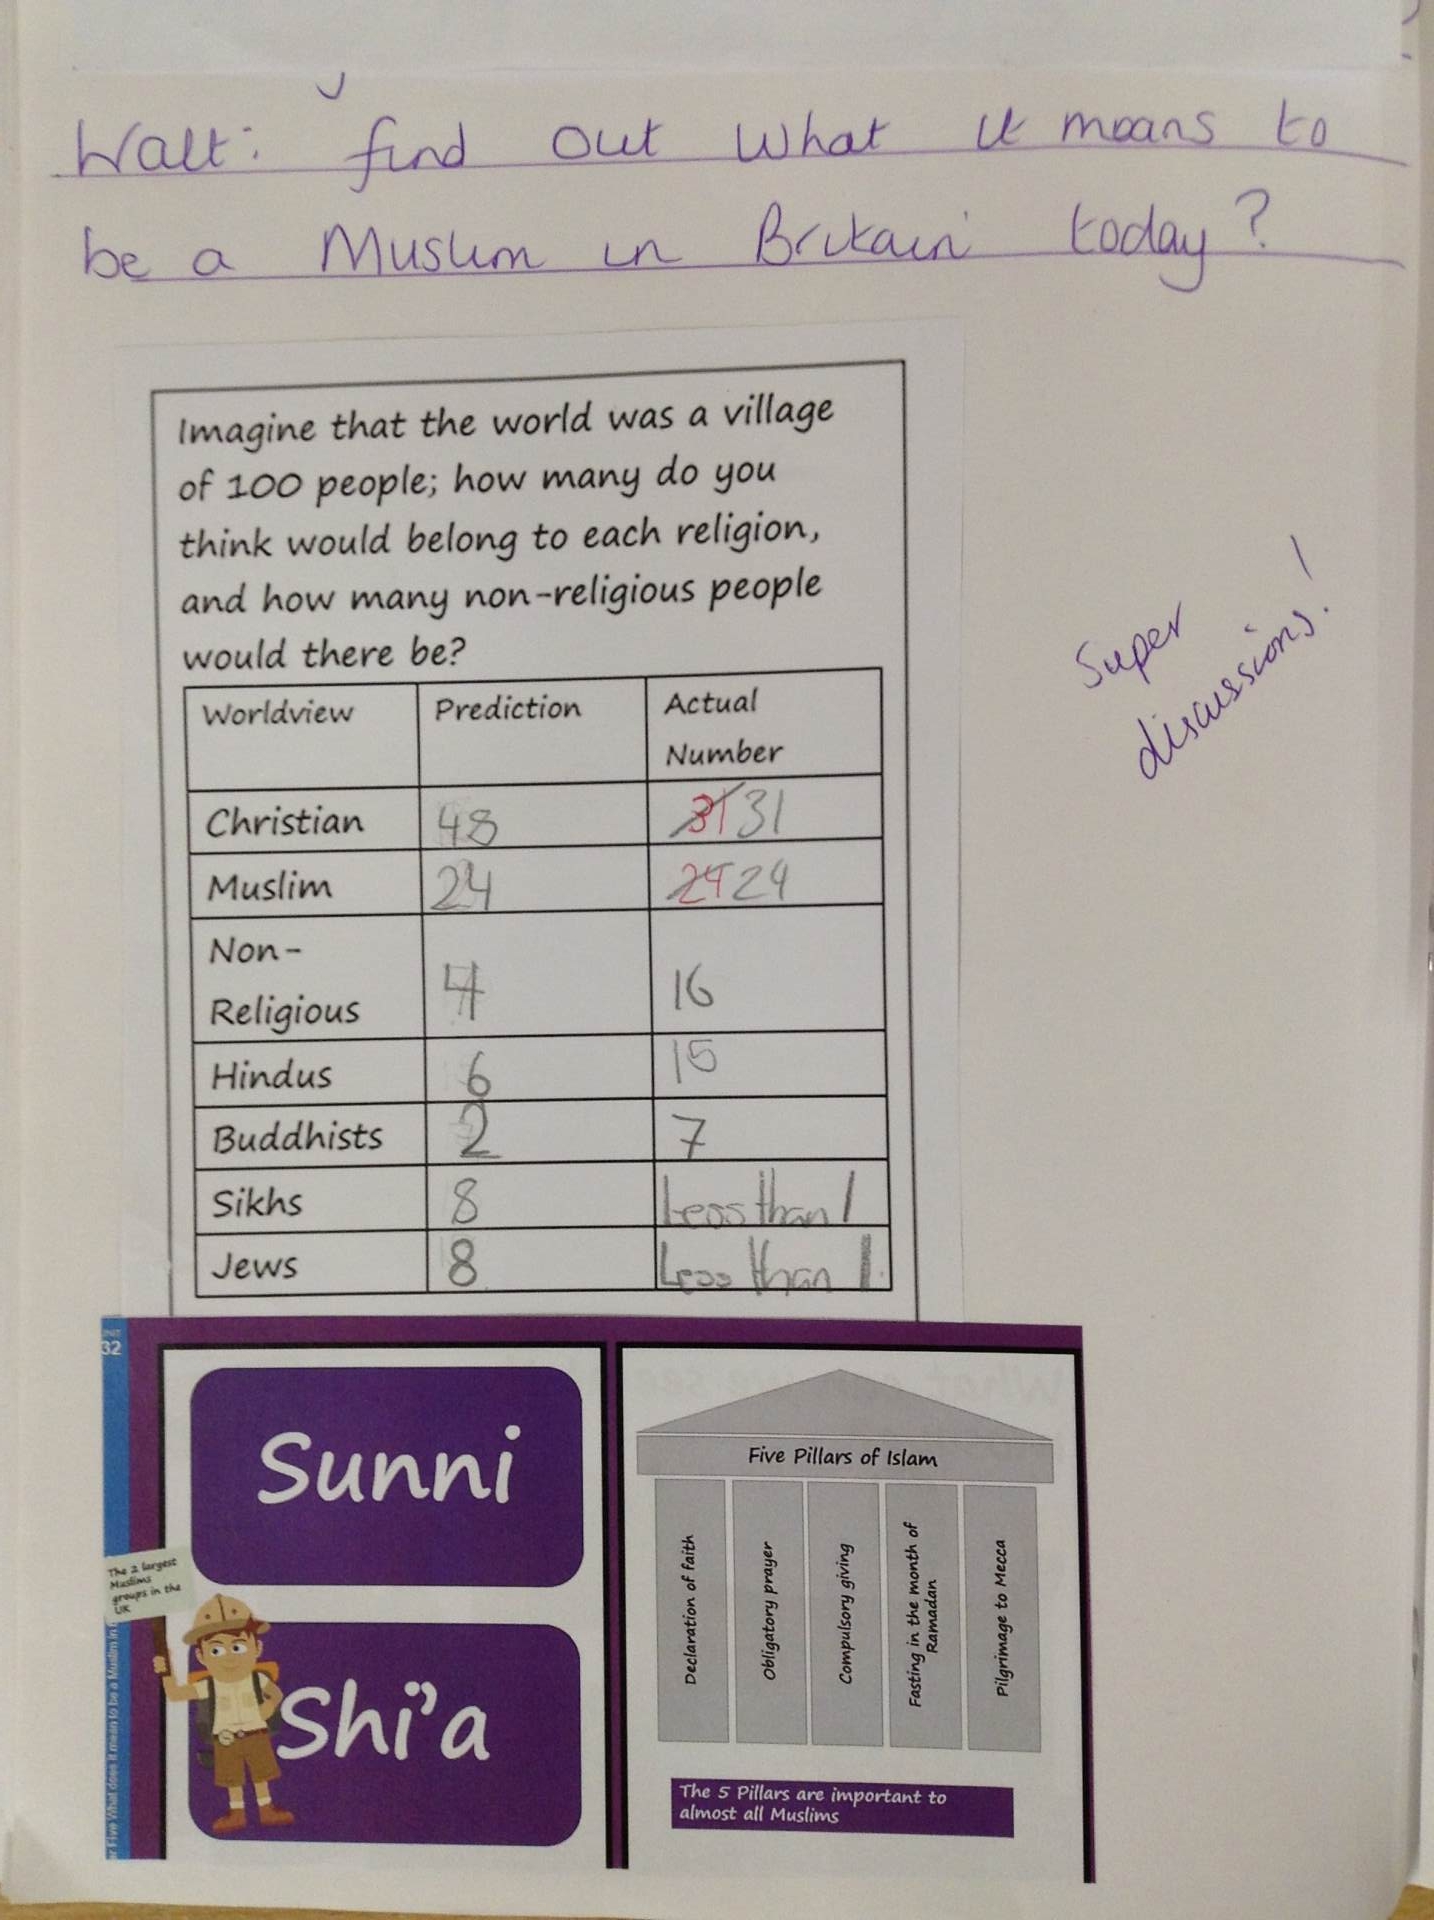 Walt: find out what it means to
be a Muslim in Britain today?
Imagine that the world was a village
of 100 people; how many do you
think would belong to each religion,
and how many non-religious people
would there be?
Worldview Prediction Actual
Number
Christian 48 31 31
Muslim 24 24 24
Non-
Religious 4 16
Hindus 6 15
Buddhists 2 7
Sikhs 8 Less than 1
Jews 8 Less than 1
Super
discussions!
32
Sunni
The 2 largest
Muslims
groups in the
UK
Shi'a
Five What does it mean to be a Muslim in
Five Pillars of Islam
Declaration of faith
Obligatory prayer
Compulsory giving
Fasting in the month of
Ramadan
Pilgrimage to Mecca
The 5 Pillars are important to
almost all Muslims